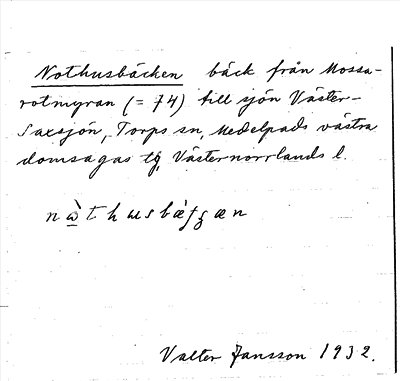 Nothusbäcken bäck från Mossa-
rotmyran (= 74) till sjön Väster-
Saxsjön, Torps sn, Medelpads västra
domsagas tg, Västernorrlands l.
Valter Jansson 1932.